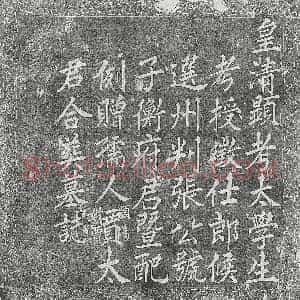 皇清顯考太學生
考授徵仕郎候
選州判張公號
子衡府君暨配
例贈孺人 太
君合葬墓誌